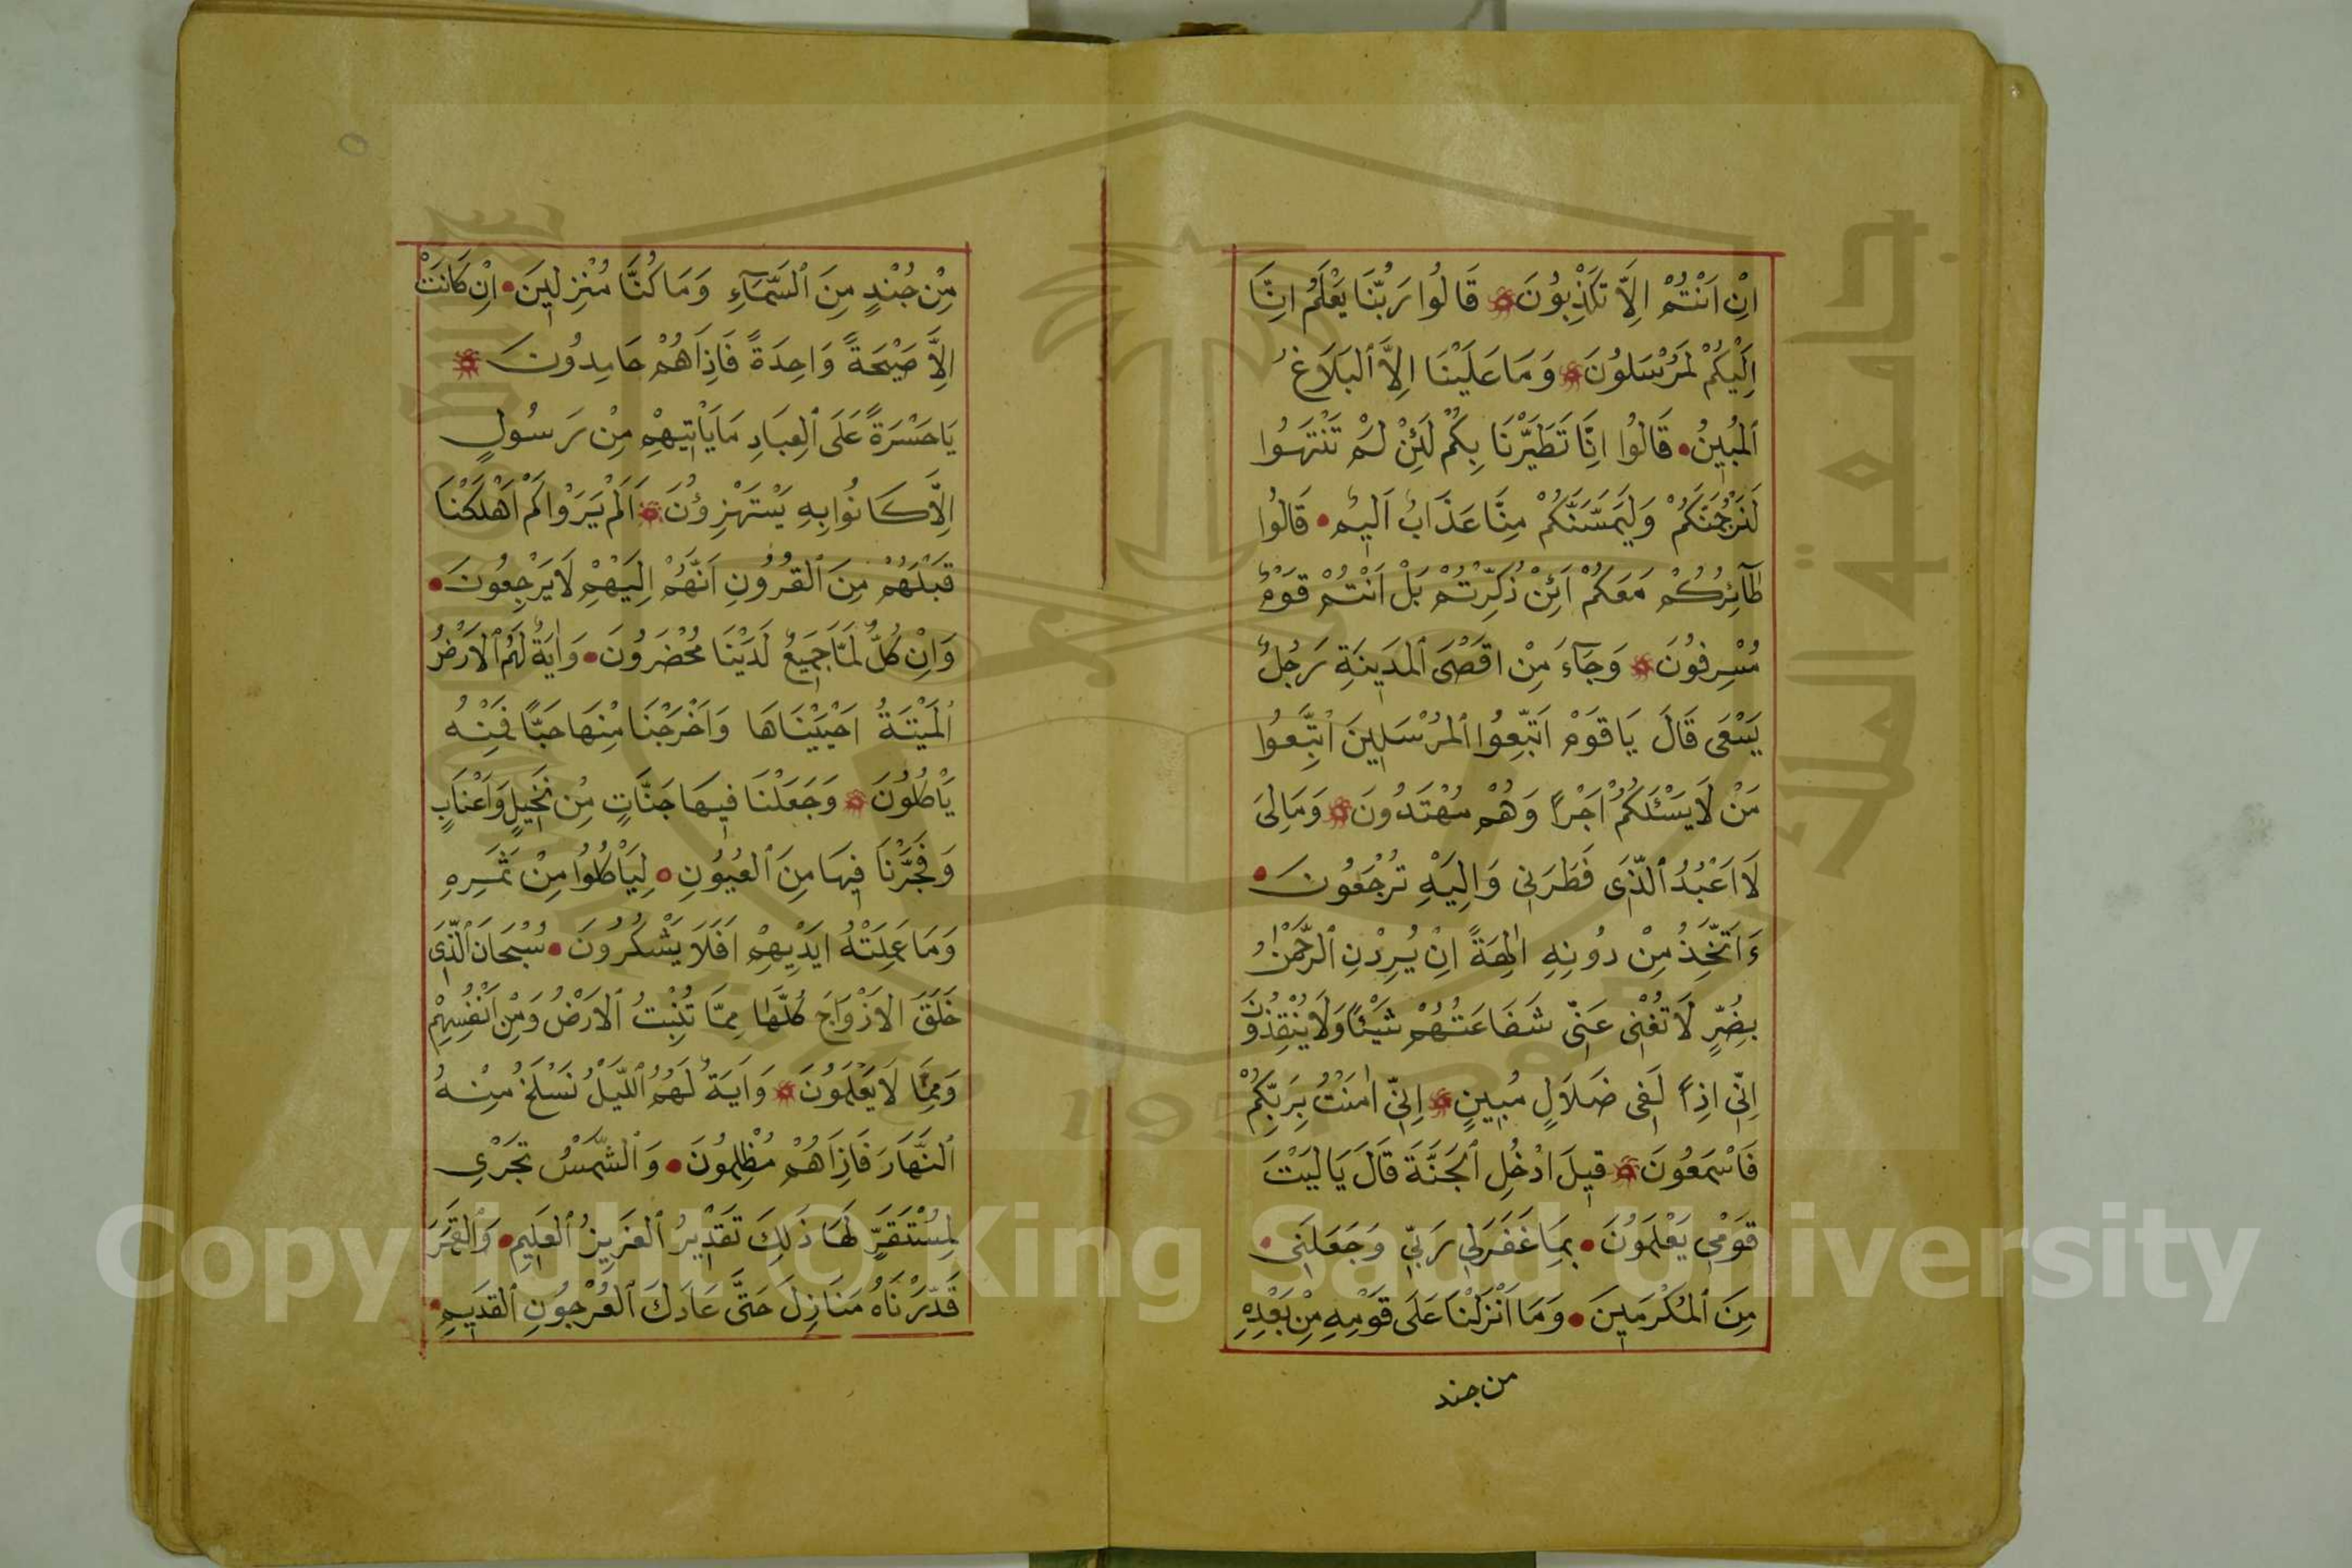 اِنْ اَنْتُمْ اِلَّا تَكْذِبُونَ قَالُوا رَبُّنَا يَعْلَمُ اِنَّا
اِلَيْكُمْ لَمُرْسَلُونَ وَمَا عَلَيْنَا اِلَّا ٱلْبَلَاغُ
ٱلْمُبِينُ قَالُوا اِنَّا تَطَيَّرْنَا بِكُمْ لَئِنْ لَمْ تَنْتَهُوا
لَنَرْجُمَنَّكُمْ وَلَيَمَسَّنَّكُمْ مِنَّا عَذَابٌ اَلِيمٌ قَالُوا
طَآئِرُكُمْ مَعَكُمْ اَئِنْ ذُكِّرْتُمْ بَلْ اَنْتُمْ قَوْمٌ
مُسْرِفُونَ وَجَآءَ مِنْ اَقْصَى ٱلْمَدِينَةِ رَجُلٌ
يَسْعَى قَالَ يَا قَوْمِ اتَّبِعُوا ٱلْمُرْسَلِينَ اتَّبِعُوا
مَنْ لَا يَسْئَلُكُمْ اَجْرًا وَهُمْ مُهْتَدُونَ وَمَالِىَ
لَا اَعْبُدُ ٱلَّذِى فَطَرَنِى وَاِلَيْهِ تُرْجَعُونَ
ءَاَتَّخِذُ مِنْ دُونِهِ اٰلِهَةً اِنْ يُرِدْنِ ٱلرَّحْمٰنُ
بِضُرٍّ لَا تُغْنِ عَنِّى شَفَاعَتُهُمْ شَيْئًا وَلَا يُنْقِذُونِ
اِنِّى اِذًا لَفِى ضَلَالٍ مُبِينٍ اِنِّى اٰمَنْتُ بِرَبِّكُمْ
فَاسْمَعُونَ قِيلَ ادْخُلِ ٱلْجَنَّةَ قَالَ يَا لَيْتَ
قَوْمِى يَعْلَمُونَ بِمَا غَفَرَلِى رَبِّى وَجَعَلَنِى
مِنَ ٱلْمُكْرَمِينَ وَمَا اَنْزَلْنَا عَلَى قَوْمِهِ مِنْ بَعْدِهِ
من جند
مِنْ جُنْدٍ مِنَ ٱلسَّمَآءِ وَمَا كُنَّا مُنْزِلِينَ اِنْ كَانَتْ
اِلَّا صَيْحَةً وَاحِدَةً فَاِذَا هُمْ خَامِدُونَ
يَا حَسْرَةً عَلَى ٱلْعِبَادِ مَا يَاْتِيهِمْ مِنْ رَسُولٍ
اِلَّا كَانُوا بِهِ يَسْتَهْزِؤُنَ اَلَمْ يَرَوْا كَمْ اَهْلَكْنَا
قَبْلَهُمْ مِنَ ٱلْقُرُونِ اَنَّهُمْ اِلَيْهِمْ لَا يَرْجِعُونَ
وَاِنْ كُلٌّ لَمَّا جَمِيعٌ لَدَيْنَا مُحْضَرُونَ وَاٰيَةٌ لَهُمُ ٱلْاَرْضُ
ٱلْمَيْتَةُ اَحْيَيْنَاهَا وَاَخْرَجْنَا مِنْهَا حَبًّا فَمِنْهُ
يَاْكُلُونَ وَجَعَلْنَا فِيهَا جَنَّاتٍ مِنْ نَخِيلٍ وَاَعْنَابٍ
وَفَجَّرْنَا فِيهَا مِنَ ٱلْعُيُونِ لِيَاْكُلُوا مِنْ ثَمَرِهِ
وَمَا عَمِلَتْهُ اَيْدِيهِمْ اَفَلَا يَشْكُرُونَ سُبْحَانَ ٱلَّذِى
خَلَقَ الْاَزْوَاجَ كُلَّهَا مِمَّا تُنْبِتُ ٱلْاَرْضُ وَمِنْ اَنْفُسِهِمْ
وَمِمَّا لَا يَعْلَمُونَ وَاٰيَةٌ لَهُمُ ٱللَّيْلُ نَسْلَخُ مِنْهُ
ٱلنَّهَارَ فَاِذَا هُمْ مُظْلِمُونَ وَٱلشَّمْسُ تَجْرِى
لِمُسْتَقَرٍّ لَهَا ذَلِكَ تَقْدِيرُ ٱلْعَزِيزِ ٱلْعَلِيمِ وَٱلْقَمَرَ
قَدَّرْنَاهُ مَنَازِلَ حَتَّى عَادَ كَ ٱلْعُرْجُونِ ٱلْقَدِيمِ
Copyright © King Saud University
جامعة الملك سعود
1957